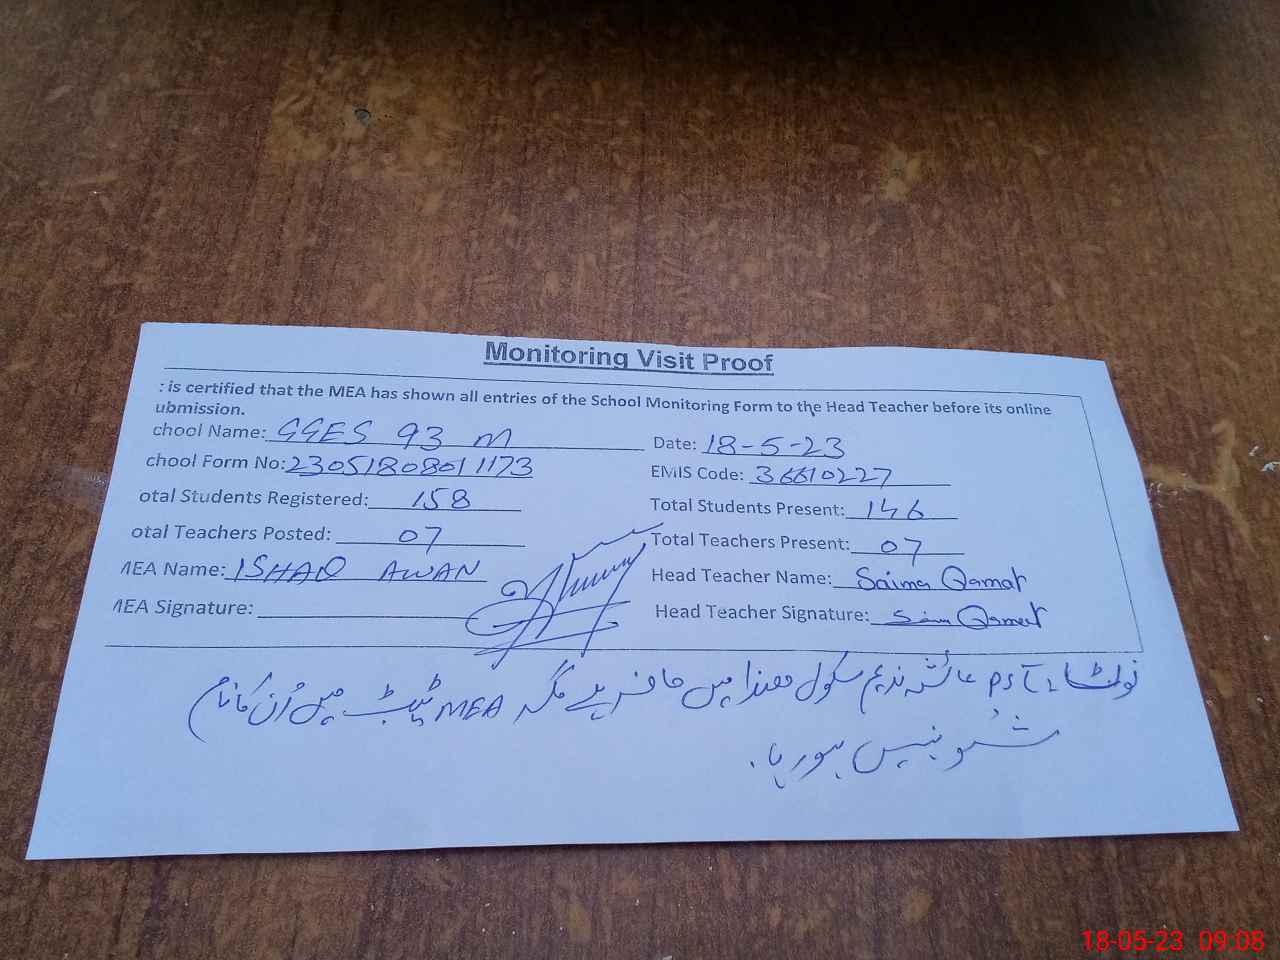 Monitoring Visit Proof
: is certified that the MEA has shown all entries of the School Monitoring Form to the Head Teacher before its online
ubmission.
chool Name: GGES 93 M
Date: 18-5-23
chool Form No: 2305180801173
EMIS Code: 36610227
otal Students Registered: 158
Total Students Present: 146
otal Teachers Posted: 07
Total Teachers Present: 07
MEA Name: ISHAQ AWAN
Head Teacher Name: Saima Qamar
MEA Signature:
Head Teacher Signature: Saima Qamar
نوٹ PST عائشہ ندیم سکول ھذا میں حاضر ہے مگر MEA ٹیب میں اُن کا نام
شو نہیں ہو رہا۔
18-05-23 09:08